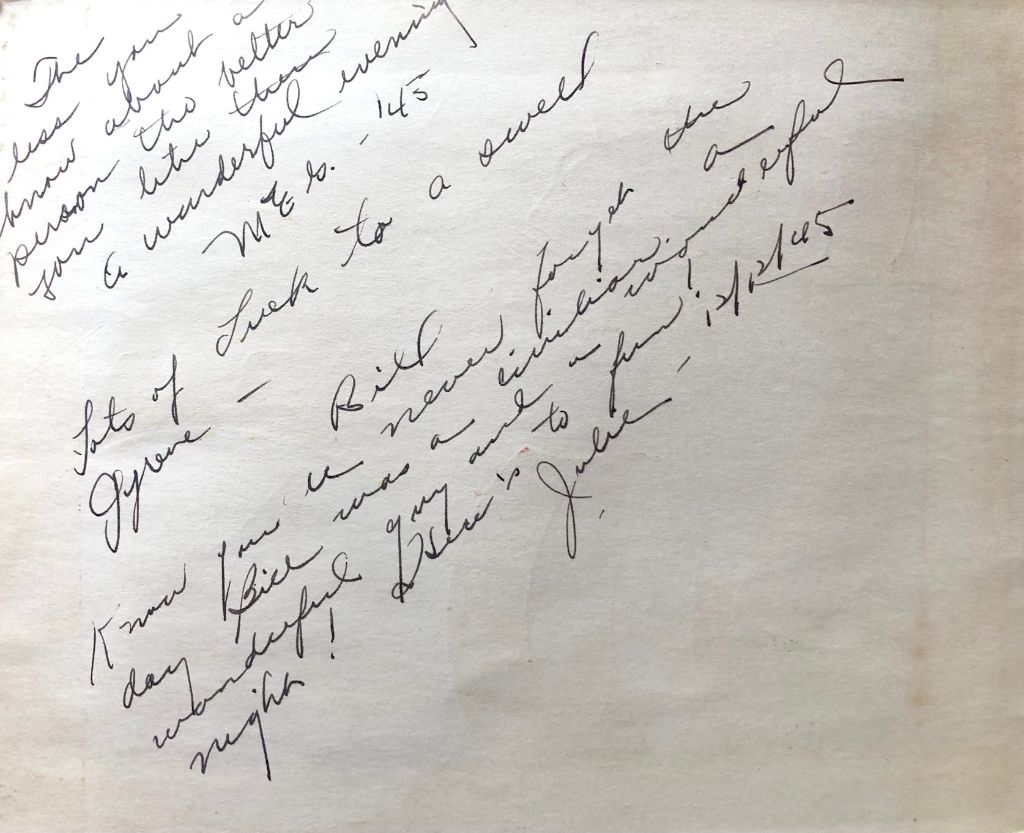 The
less you
know about a
person the better
you like them
a wonderful evening
M & G. - '45
Lots of Luck to a swell
Gyrene -
Bill
Know you'll never forget the
day Bill was a civilian. a
wonderful guy and a wonderful
night! Here's to fun!
Julie - 12/12/45